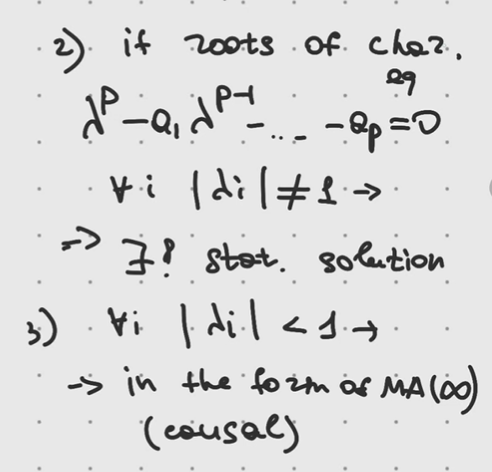 2) if roots of char. eq
λ^p - a₁ λ^{p-1} - ... - a_p = 0
∀i |λi| ≠ 1 →
→ ∃! stat. solution
3) ∀i |λi| < 1 →
→ in the form of MA(∞)
(causal)